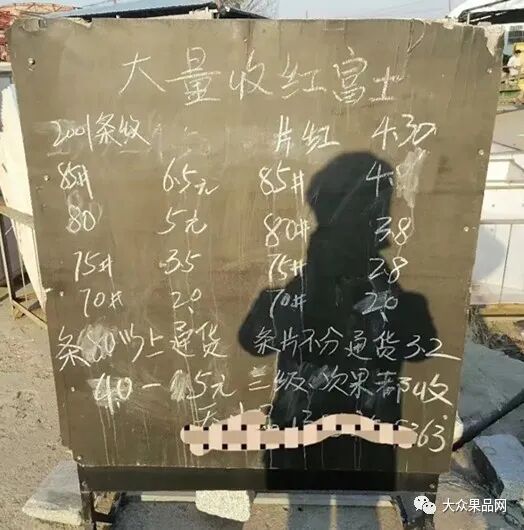 大量收红富士
2001条纹 片红 4.30
85# 6.5元 85# 4.8
80 5元 80# 3.8
75# 3.5 75# 2.8
70# 2.0 70# 2.0
条80以上通货 条片不分通货3.2
4.0-4.5元 三级、次果都收
363
大众果品网